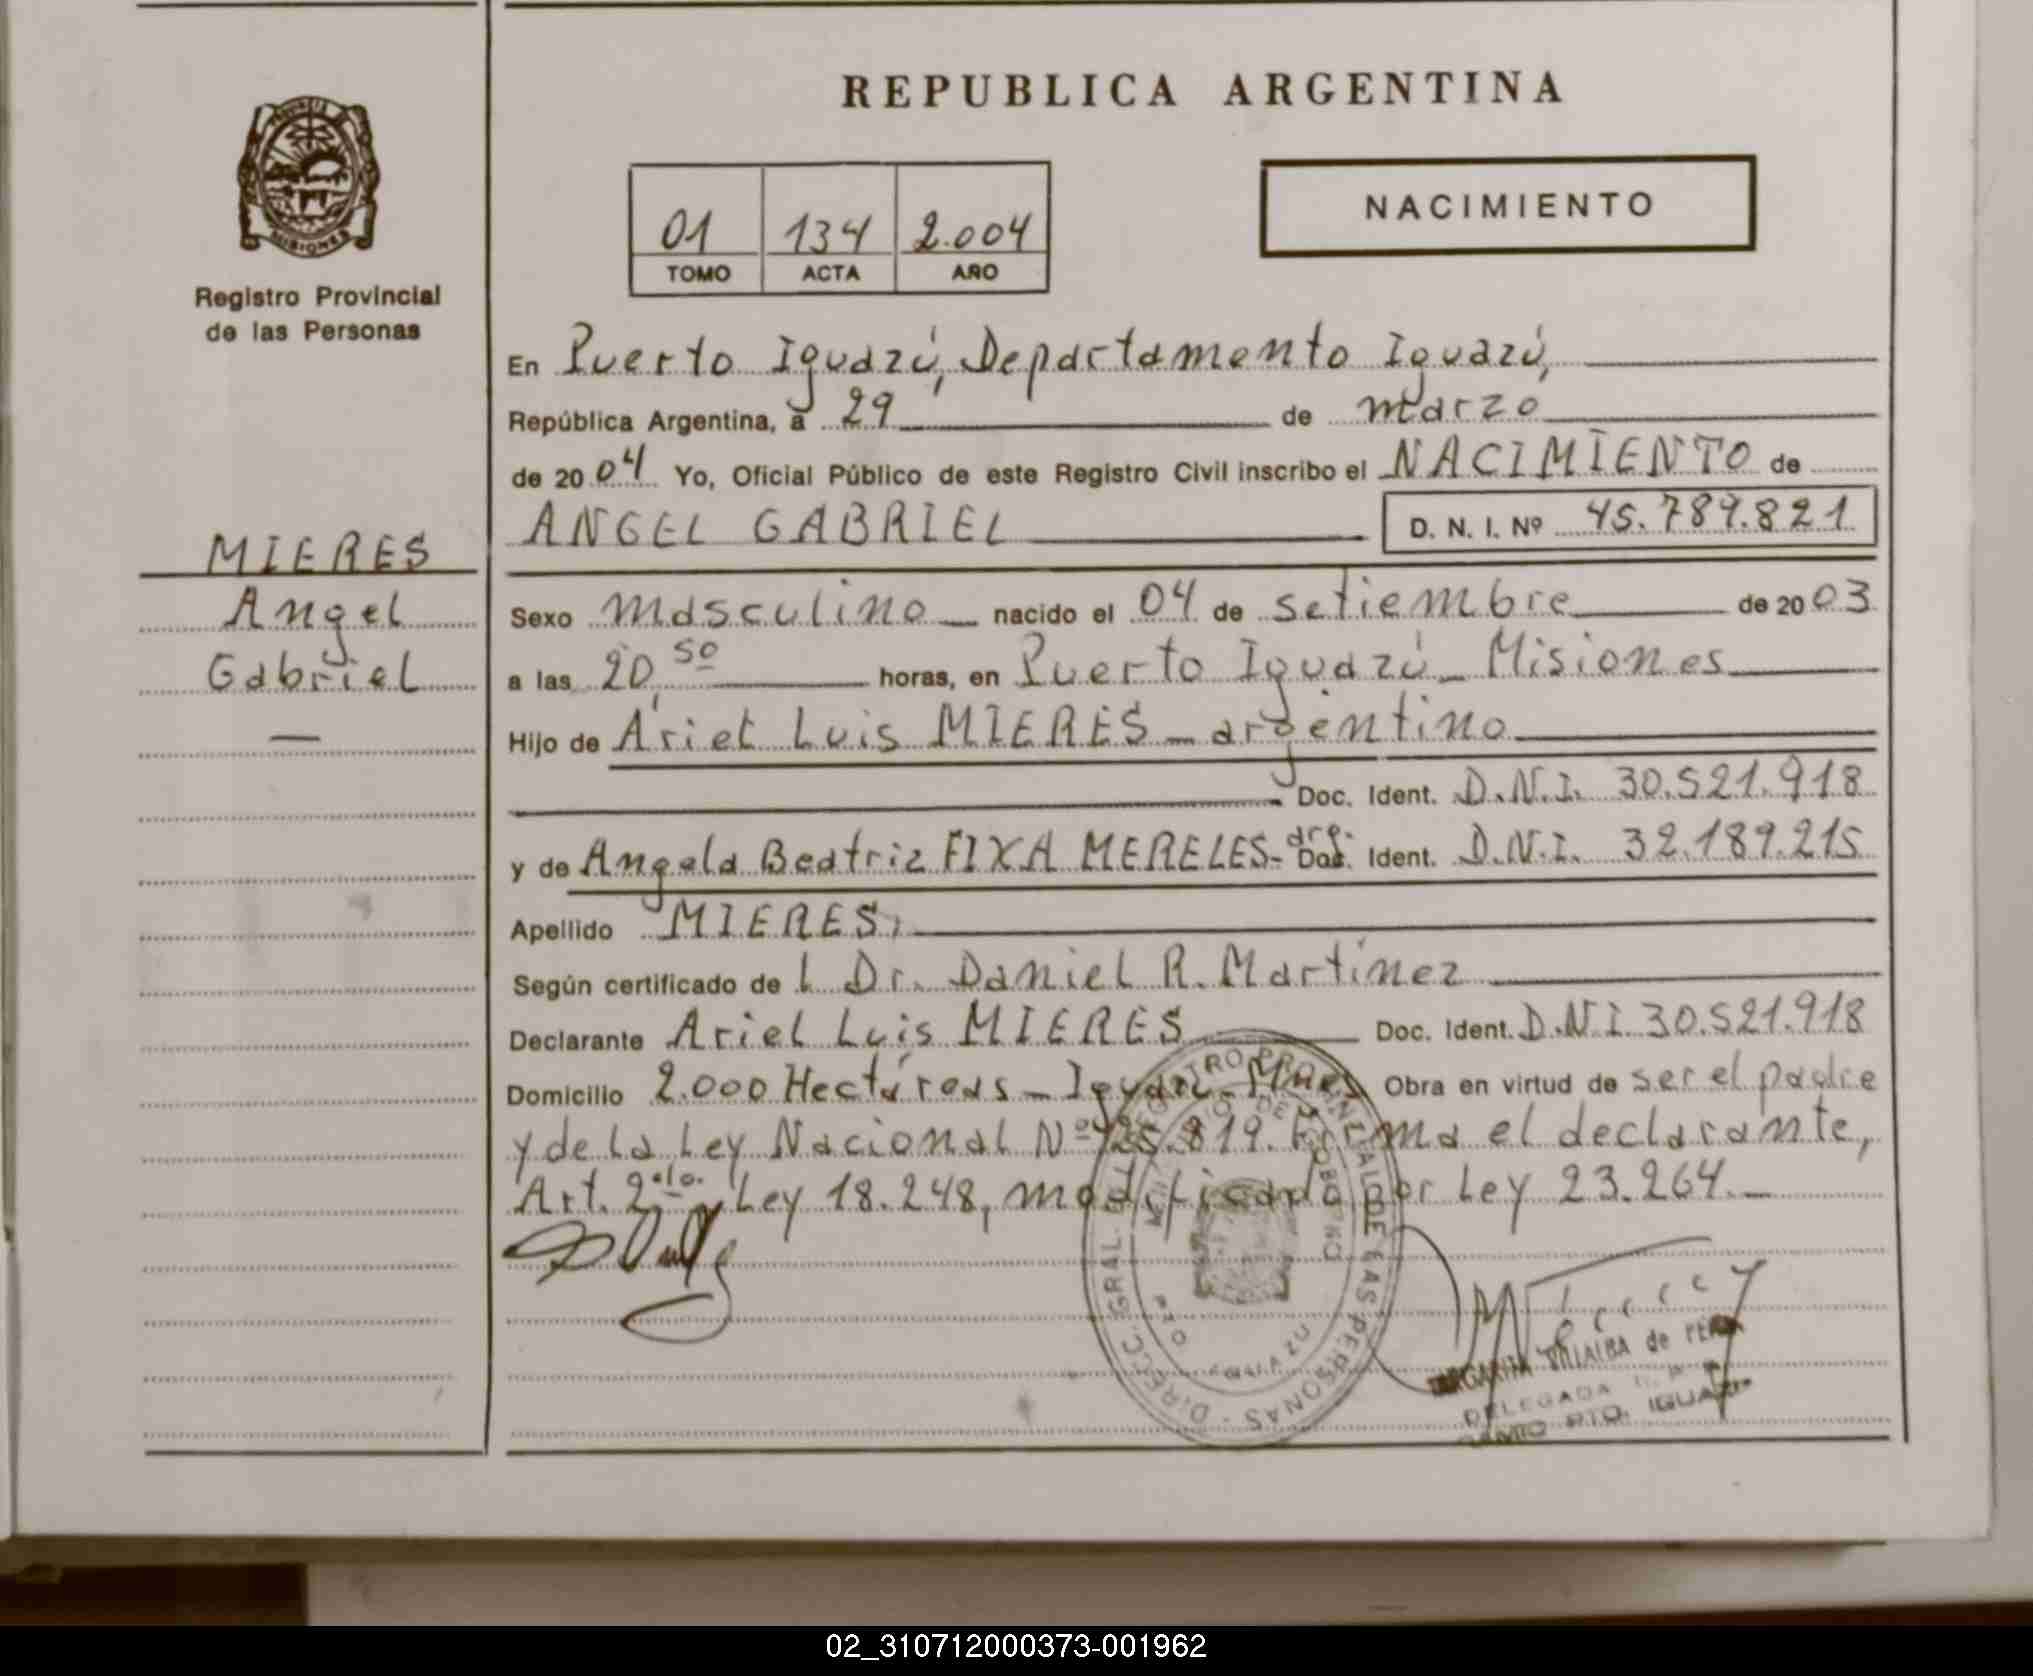 REPUBLICA ARGENTINA
PROVINCIA DE
MISIONES
Registro Provincial
de las Personas
01 134 2.004
TOMO ACTA AÑO
NACIMIENTO
En Puerto Iguazú, Departamento Iguazú,
República Argentina, a 29 de marzo
de 2004 Yo, Oficial Público de este Registro Civil inscribo el NACIMIENTO de
ANGEL GABRIEL D. N. I. Nº 45.789.821
MIERES
Angel
Gabriel
Sexo masculino nacido el 04 de setiembre de 2003
a las 20,50 horas, en Puerto Iguazú_ Misiones
Hijo de Ariel Luis MIERES_ argentino
Doc. Ident. D.N.I. 30.521.918
y de Angela Beatriz FIXA MERELES- arg. Doc. Ident. D.N.I. 32.189.215
Apellido MIERES,
Según certificado de l Dr. Daniel R. Martínez
Declarante Ariel Luis MIERES Doc. Ident. D.N.I. 30.521.918
Domicilio 2.000 Hectáreas_ Obra en virtud de ser el padre
y de la Ley Nacional Nº 25.819. Firma el declarante,
Art. 2do. Ley 18.248, modificado por Ley 23.264._
DIRECC. GRAL. DEL REGISTRO PROVINCIAL DE LAS PERSONAS
MINISTERIO DE GOBIERNO
VILLALBA de
DELEGADA
PTO. IGUAZU
02_310712000373-001962